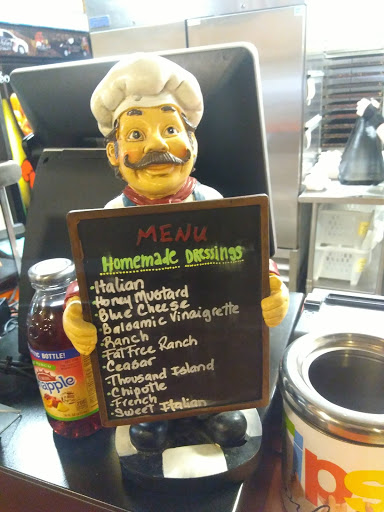 MENU
Homemade Dressings
-Italian
-Honey Mustard
-Blue Cheese
-Balsamic Vinaigrette
-Ranch
-Fat Free Ranch
-Ceasar
-Thousand Island
-Chipotle
-French
-Sweet Italian
BOTTLE!
apple
ips